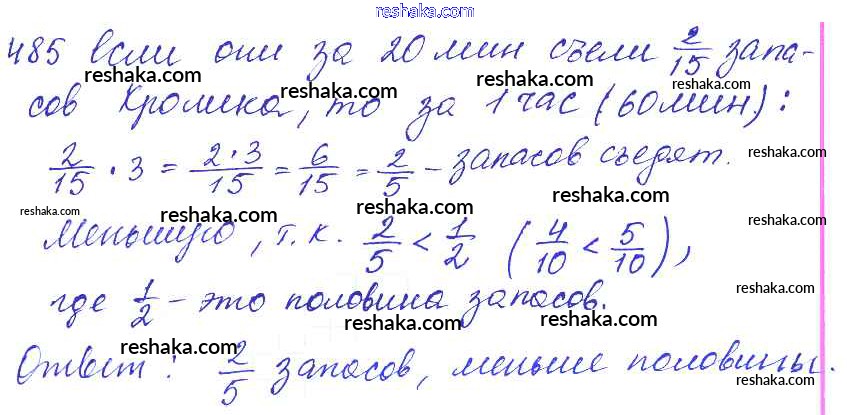 reshaka.com
485 Если они за 20 мин съели 2/15 запа-
reshaka.com reshaka.com reshaka.com
сов Кролика, то за 1 час (60 мин.):
2/15 · 3 = 2·3/15 = 6/15 = 2/5 – запасов съедят.
reshaka.com
reshaka.com reshaka.com reshaka.com reshaka.com
Меньшую, т.к. 2/5 < 1/2 (4/10 < 5/10),
reshaka.com
где 1/2 – это половина запасов.
reshaka.com reshaka.com reshaka.com
Ответ: 2/5 запасов, меньше половины.
reshaka.com reshaka.com reshaka.com